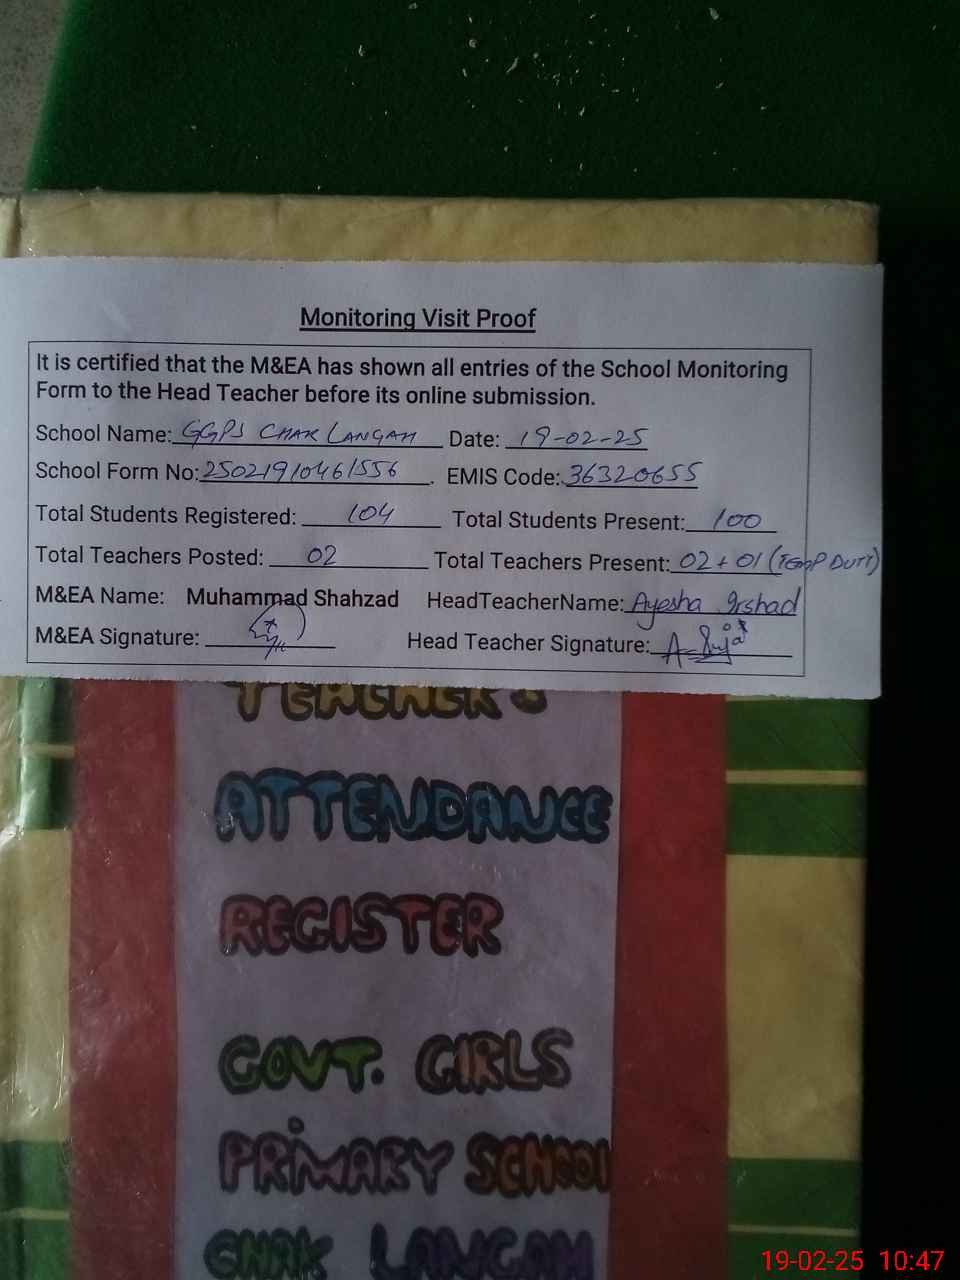 Monitoring Visit Proof
It is certified that the M&EA has shown all entries of the School Monitoring
Form to the Head Teacher before its online submission.
School Name: GGPS CHAK LANGAH Date: 19-02-25
School Form No: 25021910461556. EMIS Code: 36320655
Total Students Registered: 104 Total Students Present: 100
Total Teachers Posted: 02 Total Teachers Present: 02 + 01 (TEMP DUTY)
M&EA Name: Muhammad Shahzad HeadTeacherName: Ayesha Irshad
M&EA Signature: Head Teacher Signature:
TEACHER'S
ATTENDANCE
REGISTER
GOVT. GIRLS
PRiMARY SCHOOL
CHAK LANGAH
19-02-25 10:47